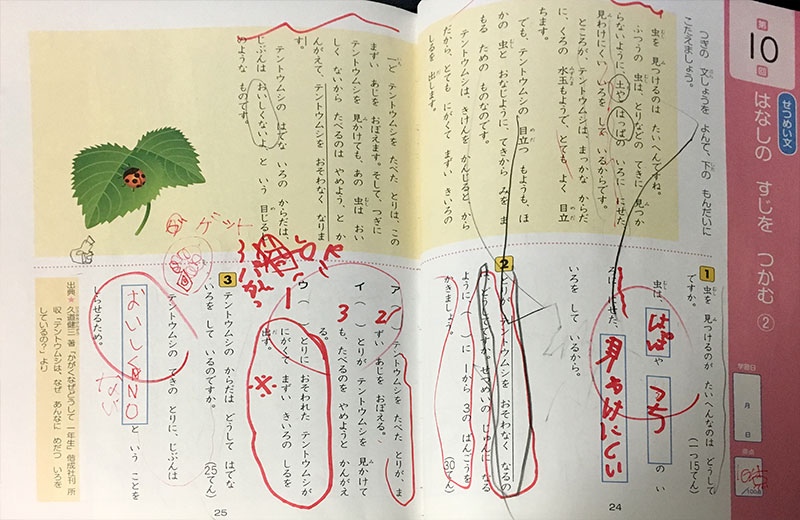 第10回
せつめい文
はなしの すじを つかむ ②
学習日
月
日
得点
/100点
つぎの 文しょうを よんで、下の もんだいに
こたえましょう。
虫を 見つけるのは たいへんですね。
ふつうの 虫は、とりなどの てきに 見つか
らないように、土や はっぱの いろに にせた
見わけにくい いろを して いるからです。
ところが、テントウムシは、まっかな からだ
に、くろの 水玉もようで、とても よく 目立
ちます。
でも、テントウムシの 目立つ もようも、ほ
かの 虫と おなじように、てきから みを ま
もる ための ものなのです。
テントウムシは、きけんを かんじると、から
だから、とても にがくて まずい きいろの
しるを 出します。
一ど テントウムシを たべた とりは、この
まずい あじを おぼえます。そして、つぎに
テントウムシを 見かけても、あの 虫は おい
しく ないから たべるのは やめよう、と か
んがえて、テントウムシを おそわなく なりま
す。
テントウムシの はでな いろの からだは、
じぶんは おいしくないよ、と いう 目じるし
のような ものです。
1 虫を 見つけるのが たいへんなのは どうして
ですか。
(一つ15てん)
虫は、はっぱや つちの い
ろに にせた、見わけにくい
いろを して いるから。
2 とりが テントウムシを おそわなく なるの
は どうしてですか。せつめいの じゅんに なる
ように、( )に 1から 3の ばんごうを
かきましょう。
(30てん)
ア( 2 )テントウムシを たべた とりが、ま
ずい あじを おぼえる。
イ( 3 )とりが テントウムシを 見かけて
も、たべるのを やめようと かんがえ
る。
ウ( 1 )とりに おそわれた テントウムシが
にがくて まずい きいろの しるを
出す。
3 テントウムシの からだは どうして はでな
いろを して いるのですか。
(25てん)
テントウムシの てきの とりに、じぶんは
おいしくNO
ない
と いう ことを
しらせるため。
ゲット
出典★久道健三 著「かがくなぜどうして 一年生」偕成社刊 所
収「テントウムシは、なぜ あんなに めだつ いろを
しているの?」より
24
25